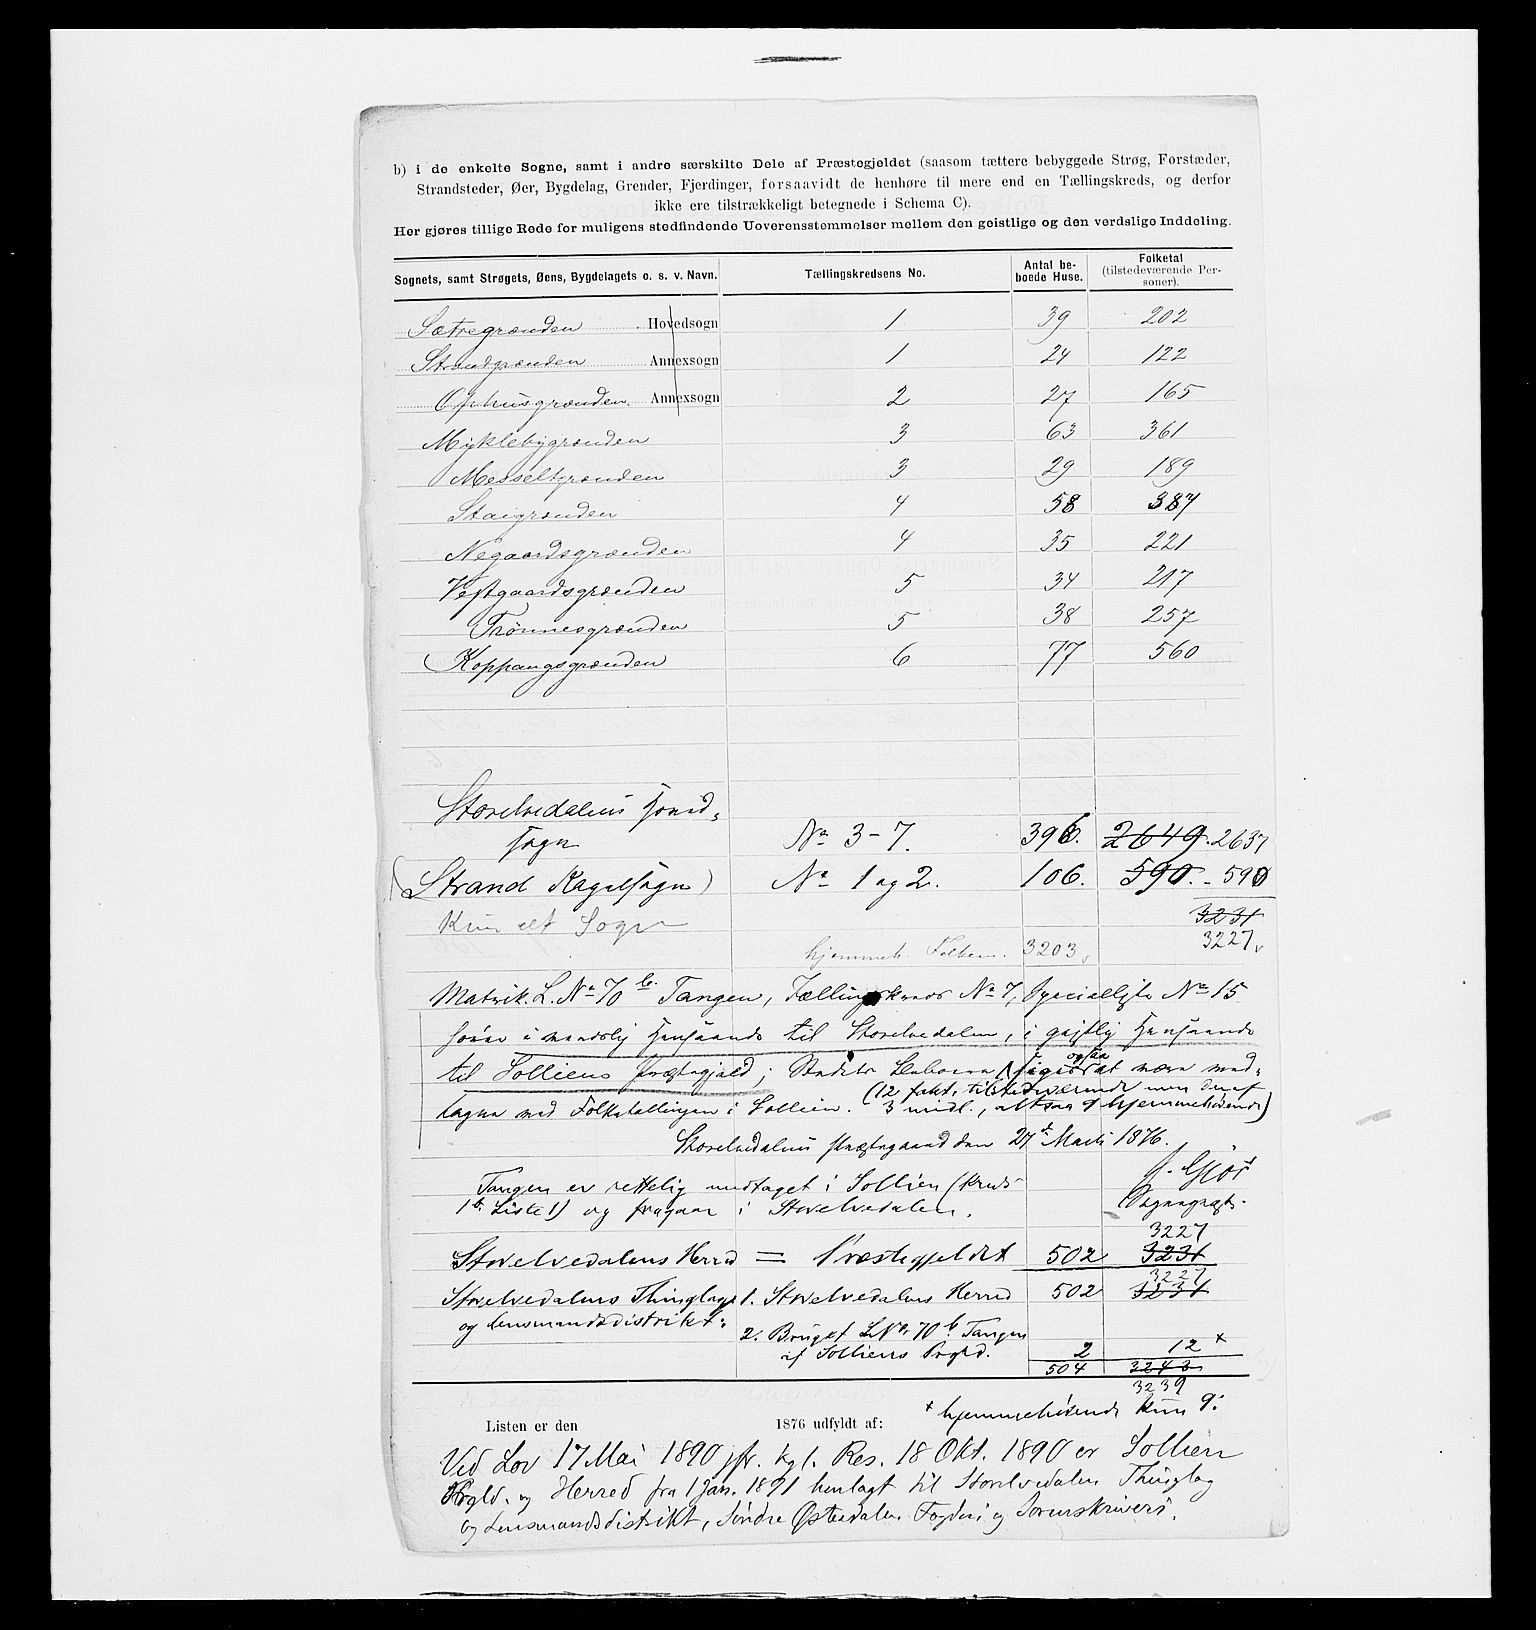 b) i de enkelte Sogne, samt i andre særskilte Dele af Præstegjeldet (saasom tættere bebyggede Strøg, Forstæder,
Strandsteder, Øer, Bygdelag, Grender, Fjerdinger, forsaavidt de henhøre til mere end en Tællingskreds, og derfor
ikke ere tilstrækkeligt betegnede i Schema C).
Her gjøres tillige Rede for muligens stedfindende Uoverensstemmelser mellem den geistlige og den verdslige Inddeling.
Sognets, samt Strøgets, Øens, Bygdelagets o. s. v. Navn. Tællingskredsens No. Antal beboede Huse. Folketal (tilstedeværende Personer).
Sætregrænden Hovedsogn 1 39 202
Strandgrænden Annexsogn 1 24 122
Ophusgrænden Annexsogn 2 27 165
Myklebygrænden 3 63 361
Messeltgrænden 3 29 189
Staigrænden 4 58 387
Negaardsgrænden 4 35 221
Vestgaardsgrænden 5 34 217
Trønnesgrænden 5 38 257
Koppangsgrænden 6 77 560
Storelvedalens Hoved-
sogn No 3-7. 396. 2649. 2637
(Strand Kapelsogn) No 1 og 2. 106. 590. - 590
Kun et Sogn 3231
hjemmeh. Folkem. 3203 3227
Matrik. L. No 70 b. Tangen, Tællingskreds No 7, Specialliste No 15
hører i verdslig Henseende til Storelvedalen, i geistlig Henseende
til Solliens Præstegjeld; Stedets Beboere figurerer ogsaa at være med-
tagne ved Folketællingen i Sollien. (12 fakt. tilstedeværende men deraf
3 midl., altsaa 9 hjemmehørende)
Storelvedalens Præstegaard den 27 Marts 1876.
Tangen er rettelig medtaget i Sollien (Kreds
1 b. Liste 1) og fragaar i Storelvedalen.
J. Gjør
Sognepræst.
3227
Storelvedalens Herred = Præstegjeldet 502 3231
3227
Storelvedalens Thinglag 1. Storelvedalens Herred 502 3231
og Lensmandsdistrikt:
2. Bruget LNo. 70 b. Tangen
af Solliens Prgld. 2 12 x
504 3243
3239
x hjemmehørende kun 9.
Listen er den 1876 udfyldt af:
Ved Lov 17 Mai 1890 jfr. kgl. Res. 18 Okt. 1890 er Sollien
Prgld. og Herred fra 1 Jan. 1891 henlagt til Storelvedalen Thinglag
og Lensmandsdistrikt, Søndre Østerdalen Fogderi og Sorenskriveri.